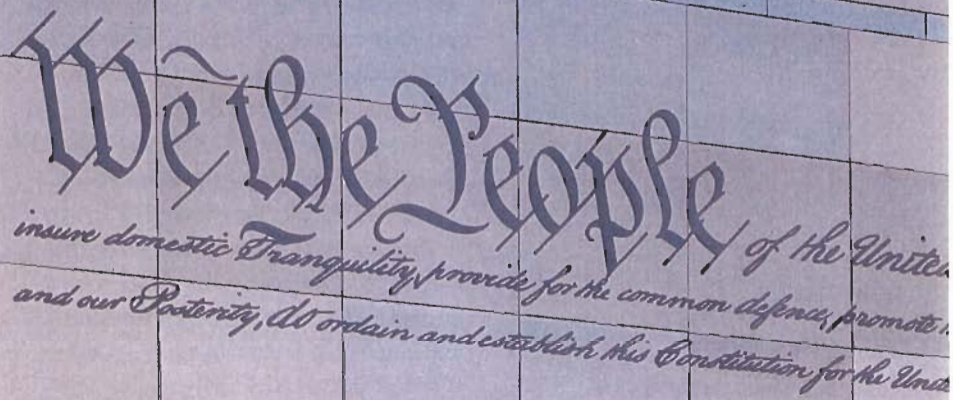 We the People of the United
insure domestic Tranquility, provide for the common defence, promote
and our Posterity, do ordain and establish this Constitution for the Unit